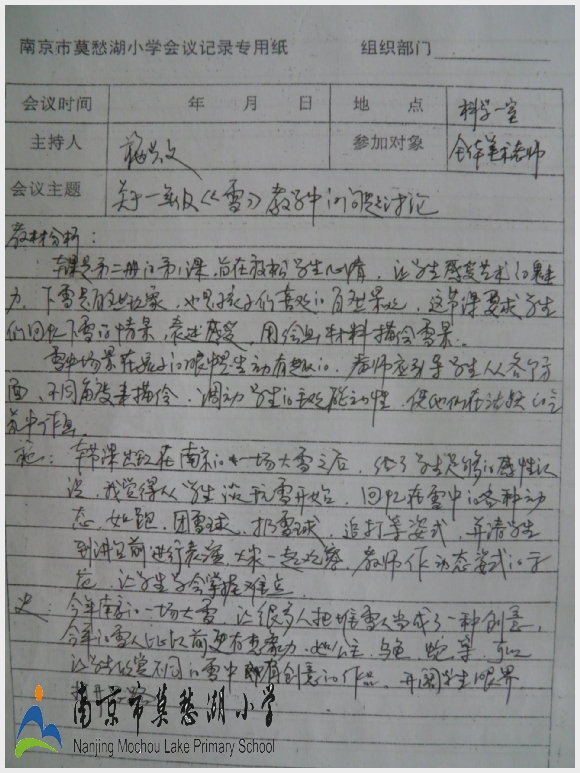 南京市莫愁湖小学会议记录专用纸 组织部门
会议时间 年 月 日 地 点 科学一室
主持人 参加对象 全体美术老师
会议主题 关于一年级《雪》教学中的问题讨论
教材分析：
本课是第二册的第1课，旨在放松学生心情，让学生感受艺术的魅
力。下雪是自然现象，也是孩子们喜欢的自然景观，这节课要求学生
们回忆下雪的情景，表达感受，用绘画材料描绘雪景。
雪中场景在孩子的眼里生动有趣的，教师应引导学生从各个方
面、不同角度来描绘，调动学生的主观能动性，使他们在活跃的气
氛中作画。
本节课出现在南京的一场大雪之后，给了学生足够的感性认
识，我觉得从学生谈玩雪开始，回忆在雪中的各种动
态，如跑、团雪球、扔雪球、追打等姿式，并请学生
到讲台前进行表演，大家一起观察，教师作动态姿式的示
范，让学生学会掌握难点。
史：今年南京的一场大雪，让很多人把堆雪人当成了一种创意，
今年的雪人比以前更有想象力，如公主、乌龟、蛇等，可以
让学生欣赏不同的雪中具有创意的作品，开阔学生眼界
南京市莫愁湖小学
Nanjing Mochou Lake Primary School